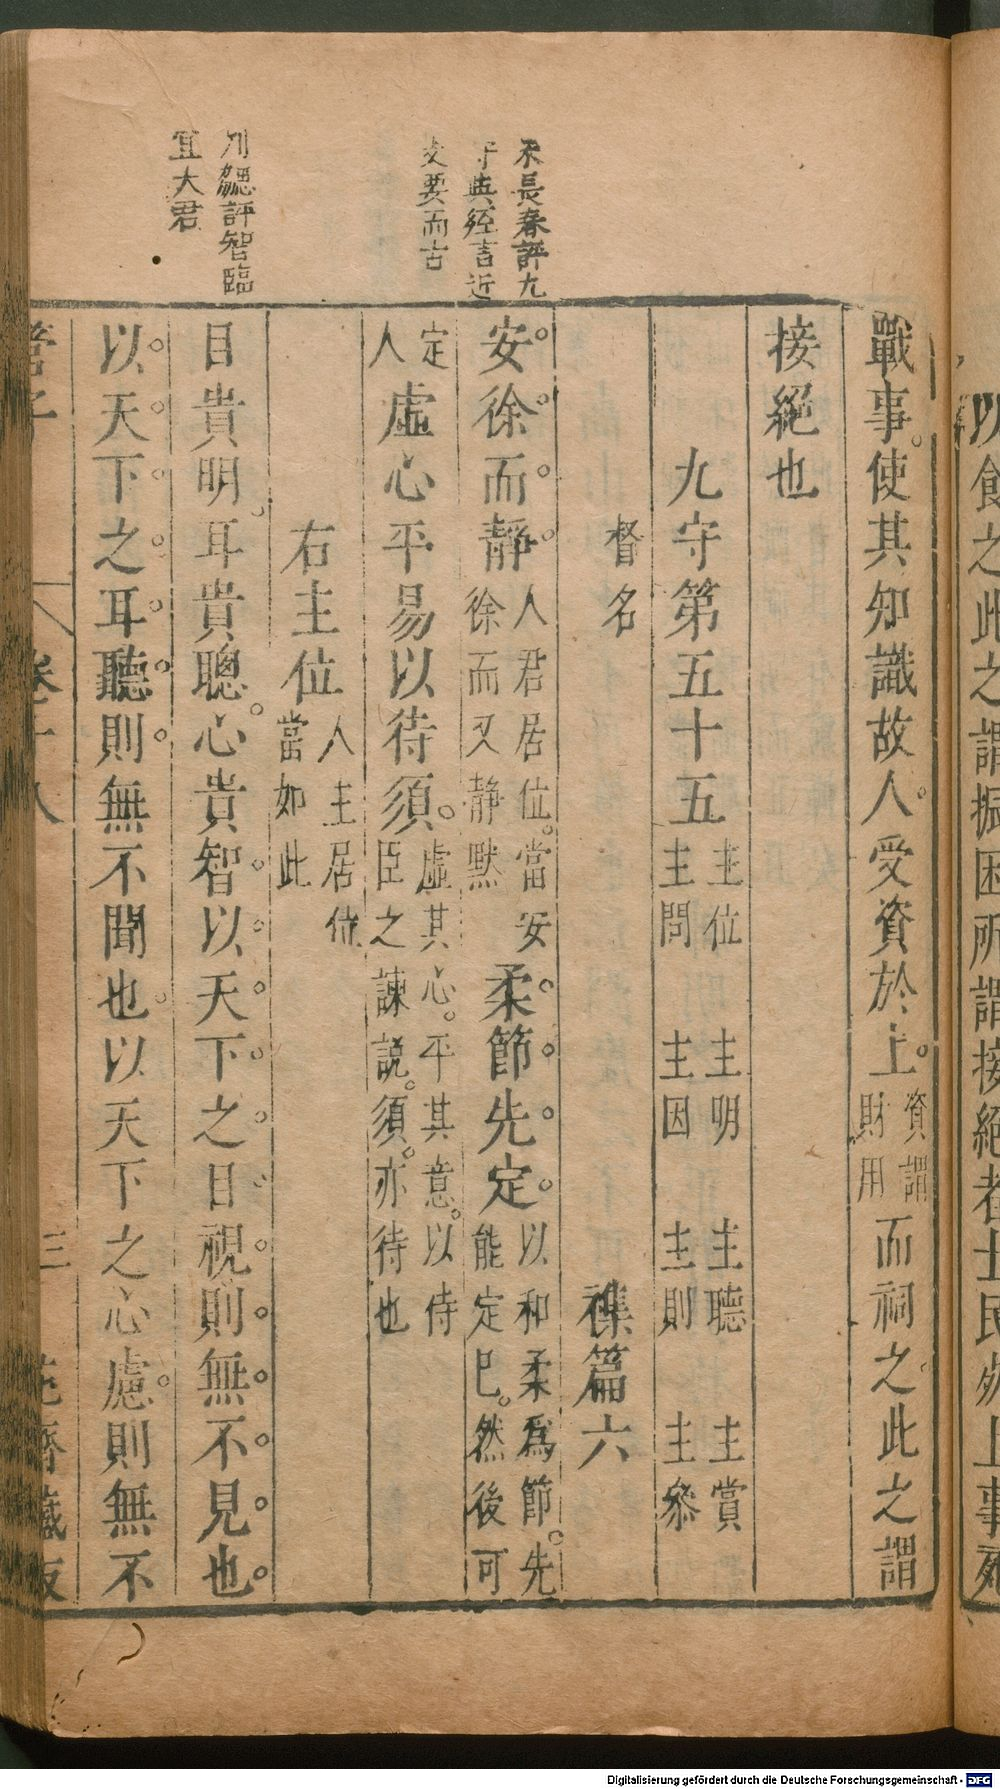 以食之此之謂振困所謂接絕者士民
上事
戰事使其知識故人受資於上資謂財用而祠之此之謂
接絕也
九守第五十五主位主問 主明主因 主聽主則 主賞主參
督名 襍篇六
安徐而靜人君居位當安徐而又靜默柔節先定以和柔為節先能定巳然後可
定人虛心平易以待須虛其心平其意以待臣之諫説須亦待也
右主位人主居位當如此
目貴明耳貴聰心貴智以天下之目視則無不見也
以天下之耳聽則無不聞也以天下之心慮則無不
長春評九
守典經言近
要而古
評智臨
宜大君
管子
卷十八
三
藏板
Digitalisierung gefördert durch die Deutsche Forschungsgemeinschaft - DFG